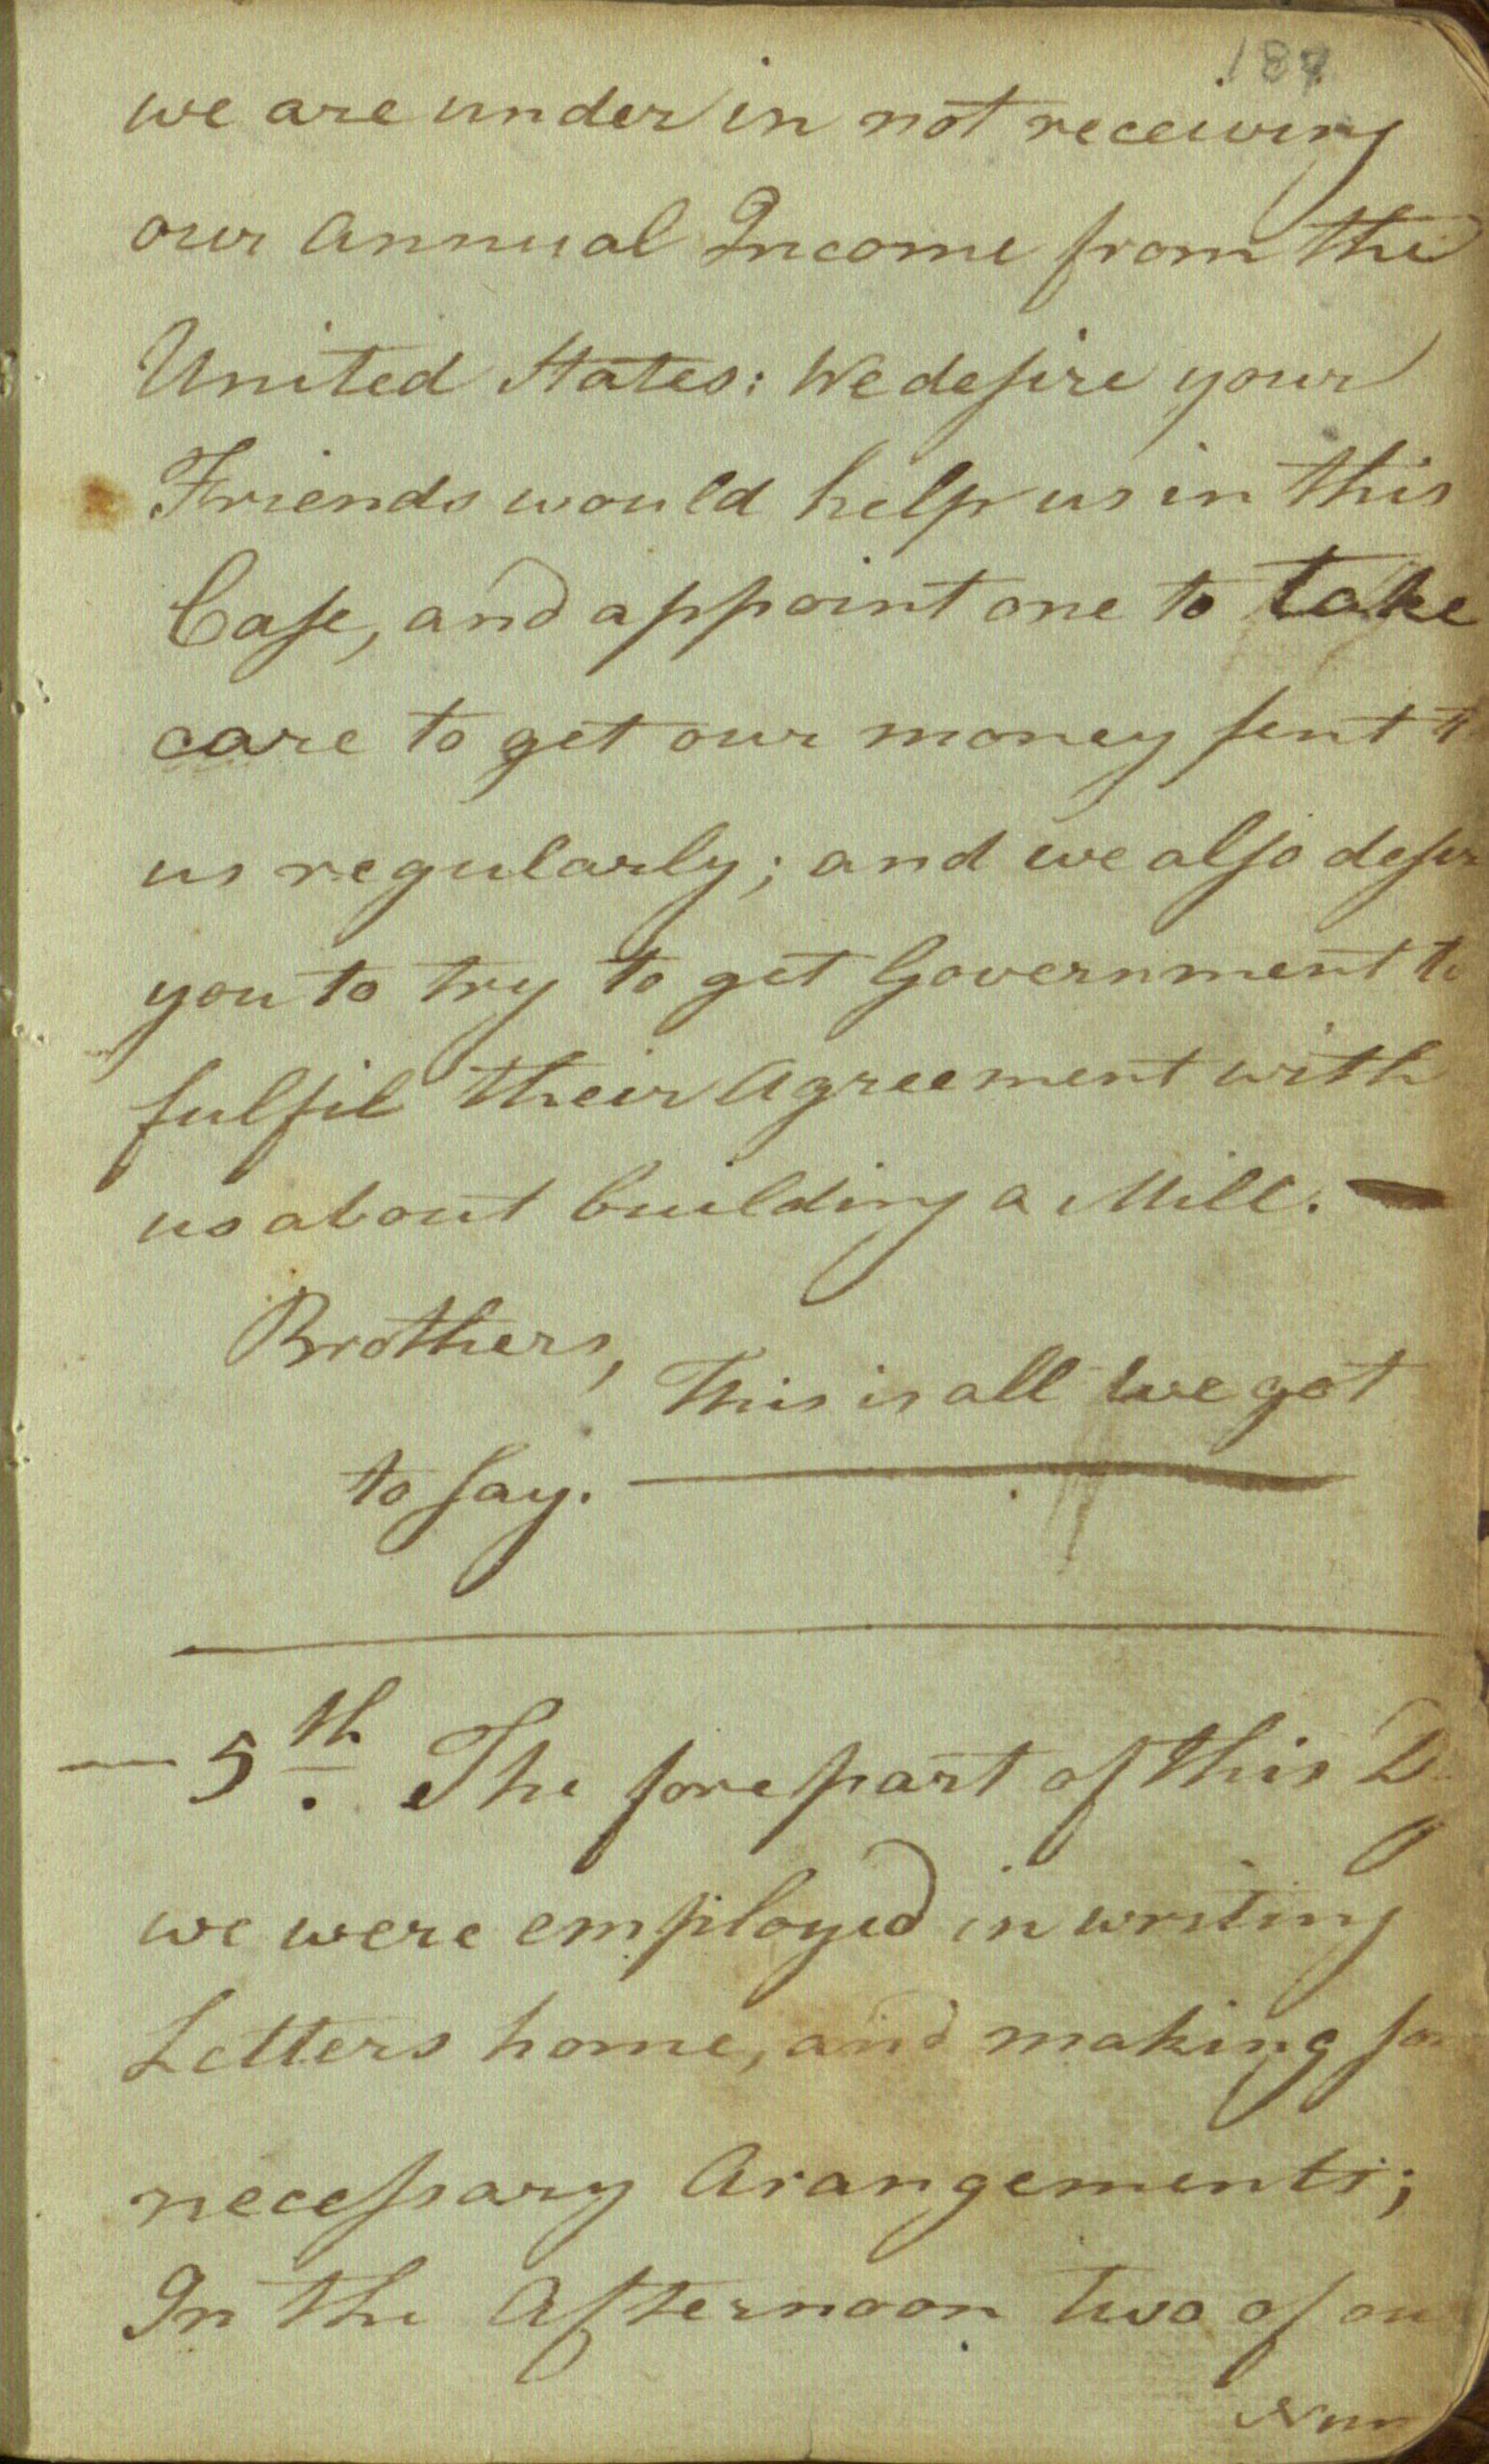 we are under in not receiving
our Annual Income from the
United States: We desire your
Friends would help us in this
Case, and appoint one to take
care to get our money sent t
us regularly; and we also desir
you to try to get Government to
fulfil their Agreement with
us about building a Mill. —
Brothers,
This is all we got
to say. —
— 5th. The forepart of this D
we were employed in writing
Letters home, and making so
necessary Arangements;
In the Afternoon two of ou
Num